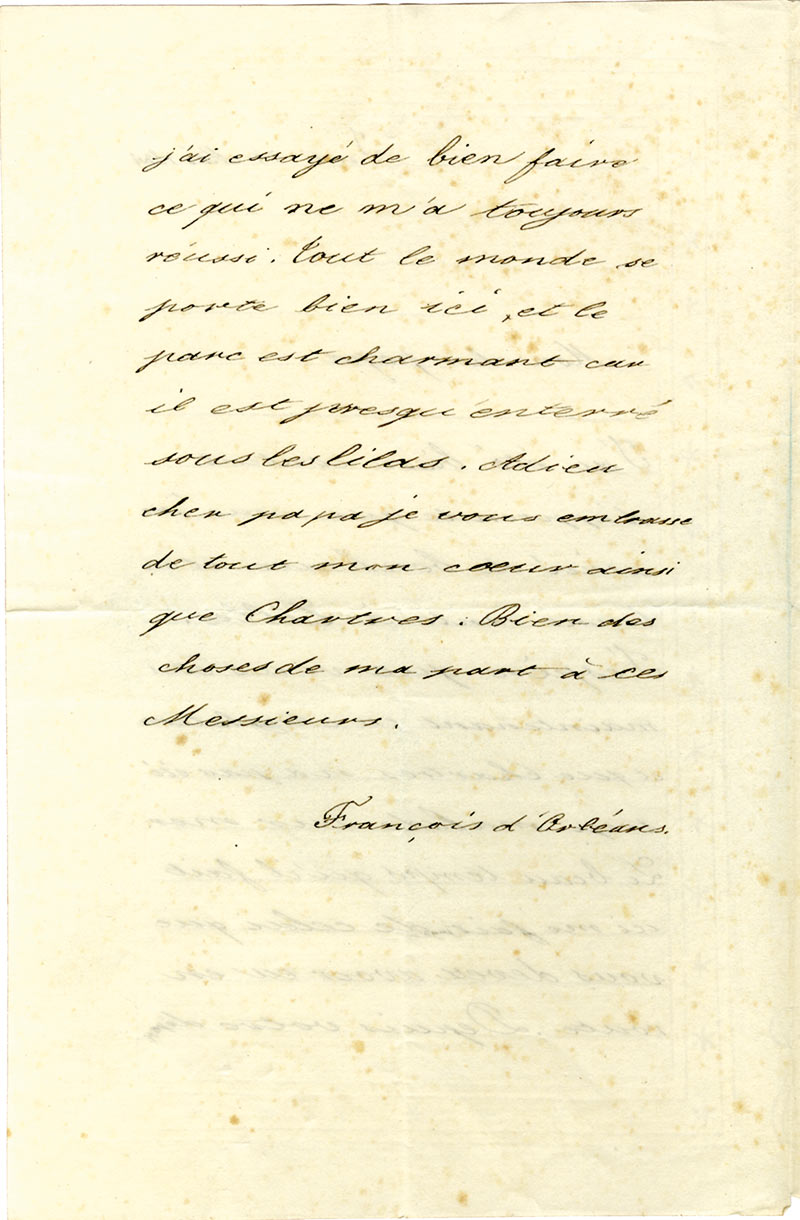 j'ai essayé de bien faire
ce qui ne m'a toujours
réussi. Tout le monde se
porte bien ici, et le
parc est charmant car
il est presqu'enterré
sous les lilas. Adieu
cher papa je vous embrasse
de tout mon coeur ainsi
que Chartres. Bien des
choses de ma part à ces
Messieurs.
François d'Orléans.